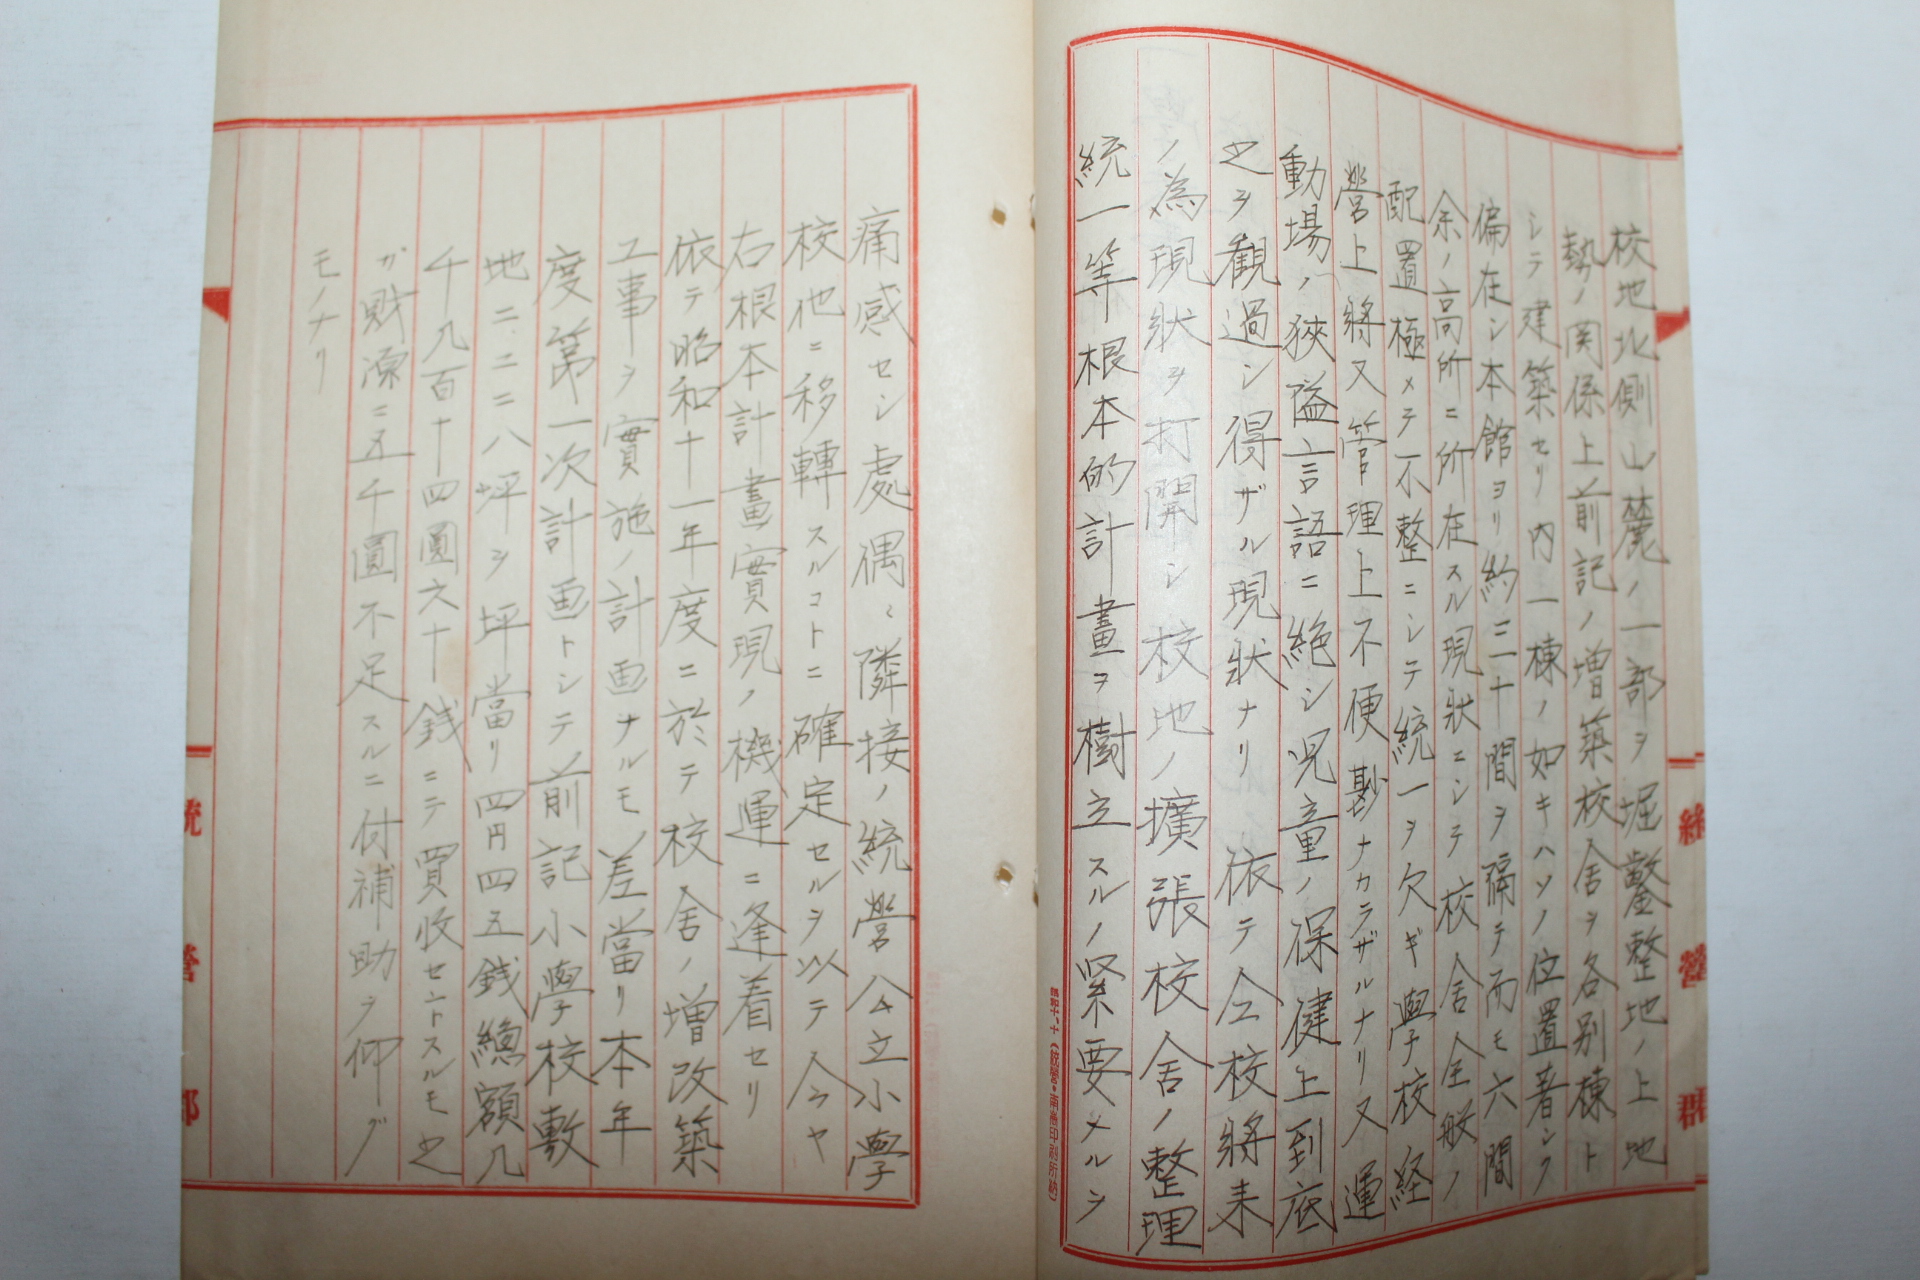 校地北側山麓ノ一部ヲ堀鑿整地ノ上地
勢ノ関係上前記ノ増築校舎ヲ各別棟ト
シテ建築セリ内一棟ノ如キハソノ位置著シク
偏在シ本館ヨリ約三十間ヲ隔テ而モ六間
余ノ高所ニ所在スル現状ニシテ校舎全般ノ
配置極メテ不整ニシテ統一ヲ欠ギ學校経
営上将又管理上不便尠ナカラザルナリ又運
動場ノ狭隘言語ニ絶シ児童ノ保健上到底
之ヲ観過シ得ザル現状ナリ 依テ仝校將来
ノ為現状ヲ打開シ校地ノ擴張校舎ノ整理
統一等根本的計畫ヲ樹立スルノ緊要メルヲ
痛感セシ處偶〻隣接ノ統営公立小學
校他ニ移轉スルコトニ確定セルヲ以テ今ヤ
右根本計畫實現ノ機運ニ逢着セリ
依テ昭和十一年度ニ於テ校舎ノ増改築
工事ヲ實施ノ計画ナルモ差當リ本年
度第一次計画トシテ前記小學校敷
地二.二二八坪ヲ坪當リ四円四五銭總額九
千九百十四圓六十銭ニテ買收セントスルモ之
ガ財源ニ五千圓不足スルニ付補助ヲ仰グ
モノナリ
統 営 郡
統 營 郡